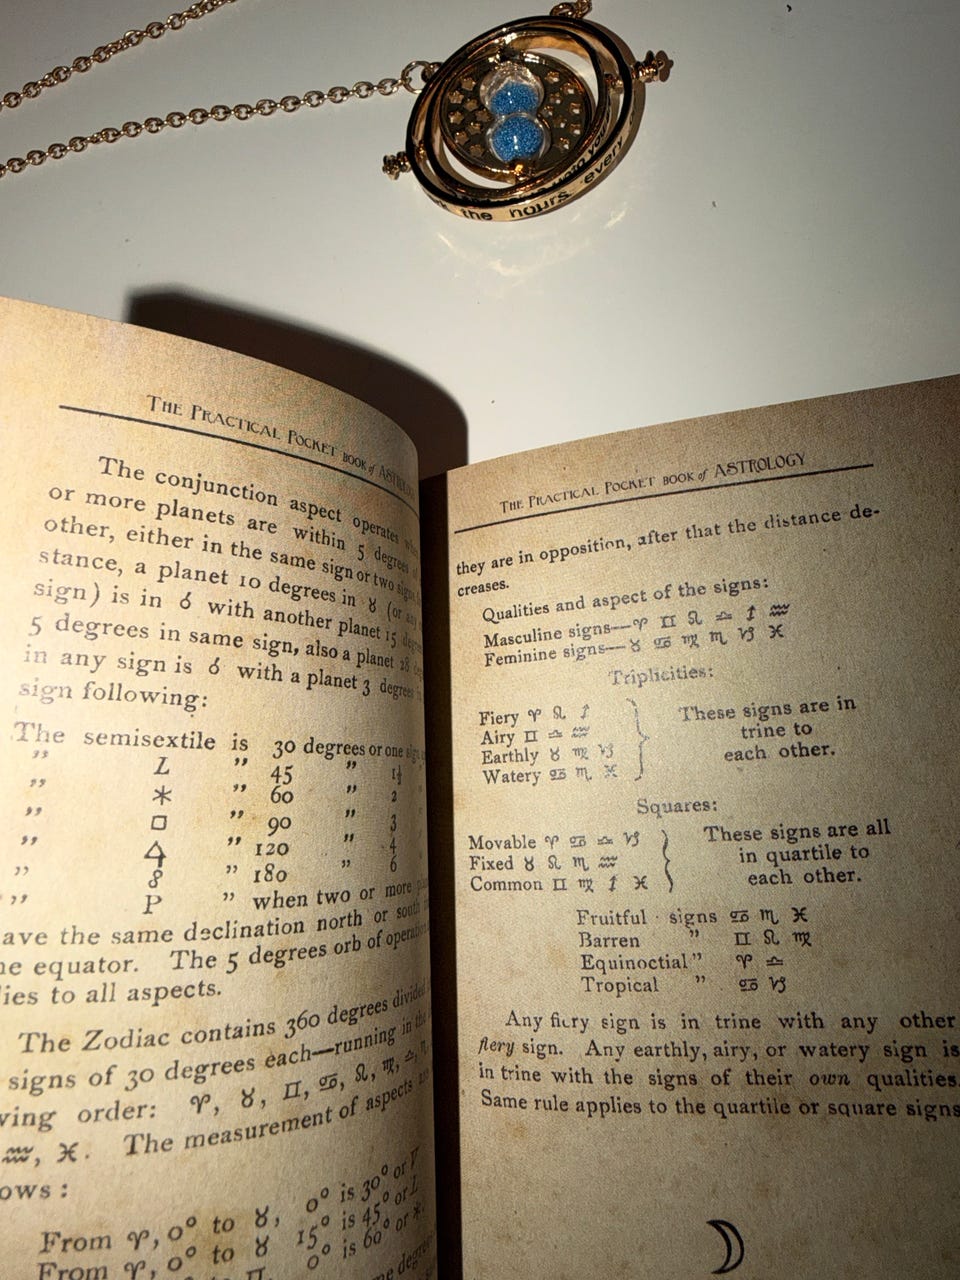 the hours, every
THE PRACTICAL POCKET BOOK of ASTROLOGY
The conjunction aspect operates
or more planets are within 5 degrees
other, either in the same sign or two signs
stance, a planet 10 degrees in ♉ (or any
sign) is in ☌ with another planet 15
5 degrees in same sign, also a planet 28
in any sign is ☌ with a planet 3 degrees
sign following:
The semisextile is 30 degrees or one sign
” L ” 45 ” 1½
” ⚹ ” 60 ” 2
” □ ” 90 ” 3
” △ ” 120 ” 4
” ☍ ” 180 ” 6
” P ” when two or more
ave the same declination north or south
e equator. The 5 degrees orb of
ies to all aspects.
The Zodiac contains 360 degrees divided
signs of 30 degrees each—running in the
ving order: ♈, ♉, ♊, ♋, ♌, ♍, ♎,
♒, ♓. The measurement of aspects
ows:
From ♈, 0° to ♉, 0° is 30° or V
From ♈, 0° to ♉ 15° is 45° or L
♊, 0° is 60° or ⚹.
THE PRACTICAL POCKET BOOK of ASTROLOGY
they are in opposition, after that the distance de-
creases.
Qualities and aspect of the signs:
Masculine signs—♈ ♊ ♌ ♎ ♐ ♒
Feminine signs—♉ ♋ ♍ ♏ ♑ ♓
Triplicities:
Fiery ♈ ♌ ♐
Airy ♊ ♎ ♒
Earthly ♉ ♍ ♑
Watery ♋ ♏ ♓
These signs are in
trine to
each other.
Squares:
Movable ♈ ♋ ♎ ♑
Fixed ♉ ♌ ♏ ♒
Common ♊ ♍ ♐ ♓
These signs are all
in quartile to
each other.
Fruitful signs ♋ ♏ ♓
Barren ” ♊ ♌ ♍
Equinoctial ” ♈ ♎
Tropical ” ♋ ♑
Any fiery sign is in trine with any other
fiery sign. Any earthly, airy, or watery sign is
in trine with the signs of their own qualities.
Same rule applies to the quartile or square signs